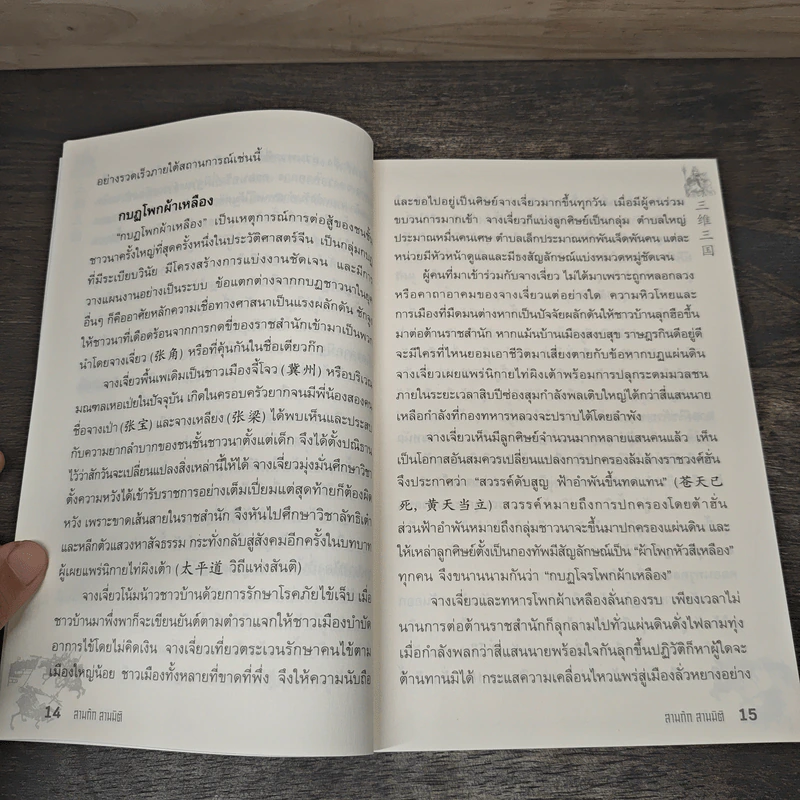 อย่างรวดเร็วภายใต้สถานการณ์เช่นนี้
กบฏโพกผ้าเหลือง
"กบฏโพกผ้าเหลือง" เป็นเหตุการณ์การต่อสู้ของชนชั้น
ชาวนาครั้งใหญ่ที่สุดครั้งหนึ่งในประวัติศาสตร์จีน เป็นกลุ่มกบฏ
ที่มีระเบียบวินัย มีโครงสร้างการแบ่งงานชัดเจน และมีการ
วางแผนงานอย่างเป็นระบบ ข้อแตกต่างจากกบฏชาวนาในยุค
อื่นๆ ก็คืออาศัยหลักความเชื่อทางศาสนาเป็นแรงผลักดัน ชักจูง
ให้ชาวนาที่เดือดร้อนจากการกดขี่ของราชสำนักเข้ามาเป็นพวก
นำโดยจางเจี่ยว (张角) หรือที่คุ้นกันในชื่อเตียวก๊ก
จางเจี่ยวพื้นเพเดิมเป็นชาวเมืองจี้โจว (冀州) หรือบริเวณ
มณฑลเหอเป่ยในปัจจุบัน เกิดในครอบครัวยากจนมีพี่น้องสองคน
ชื่อจางเป่า (张宝) และจางเหลียง (张梁) ได้พบเห็นและประสบ
กับความยากลำบากของชนชั้นชาวนาตั้งแต่เด็ก จึงได้ตั้งปณิธาน
ไว้ว่าสักวันจะเปลี่ยนแปลงสิ่งเหล่านี้ให้ได้ จางเจี่ยวมุ่งมั่นศึกษาวิชา
ตั้งความหวังได้เข้ารับราชการอย่างเต็มเปี่ยมแต่สุดท้ายก็ต้องผิด
หวัง เพราะขาดเส้นสายในราชสำนัก จึงหันไปศึกษาวิชาลัทธิเต๋า
และหลีกตัวแสวงหาสัจธรรม กระทั่งกลับสู่สังคมอีกครั้งในบทบาท
ผู้เผยแพร่นิกายไท่ผิงเต้า (太平道 วิถีแห่งสันติ)
จางเจี่ยวโน้มน้าวชาวบ้านด้วยการรักษาโรคภัยไข้เจ็บ เมื่อ
ชาวบ้านมาพึ่งพาก็จะเขียนยันต์ตามตำราแจกให้ชาวเมืองบำบัด
อาการไข้โดยไม่คิดเงิน จางเจี่ยวเที่ยวตระเวนรักษาคนไข้ตาม
เมืองใหญ่น้อย ชาวเมืองทั้งหลายที่ขาดที่พึ่ง จึงให้ความนับถือ
14 สามก๊ก สามมิติ
三维三国
และขอไปอยู่เป็นศิษย์จางเจี่ยวมากขึ้นทุกวัน เมื่อมีผู้คนร่วม
ขบวนการมากเข้า จางเจี่ยวก็แบ่งลูกศิษย์เป็นกลุ่ม ตำบลใหญ่
ประมาณหมื่นคนเศษ ตำบลเล็กประมาณหกพันเจ็ดพันคน แต่ละ
หน่วยมีหัวหน้าดูแลและมีธงสัญลักษณ์แบ่งหมวดหมู่ชัดเจน
ผู้คนที่มาเข้าร่วมกับจางเจี่ยว ไม่ได้มาเพราะถูกหลอกลวง
หรือคาถาอาคมของจางเจี่ยวแต่อย่างใด ความหิวโหยและ
การเมืองที่มืดมนต่างหากเป็นปัจจัยผลักดันให้ชาวบ้านลุกฮือขึ้น
มาต่อต้านราชสำนัก หากแม้นบ้านเมืองสงบสุข ราษฎรกินดีอยู่ดี
จะมีใครที่ไหนยอมเอาชีวิตมาเสี่ยงตายกับข้อหากบฏแผ่นดิน
จางเจี่ยวเผยแพร่นิกายไท่ผิงเต้าพร้อมการปลุกระดมมวลชน
ภายในระยะเวลาสิบปีซ่องสุมกำลังพลเติบใหญ่ได้กว่าสี่แสนนาย
เหลือกำลังที่กองทหารหลวงจะปราบได้โดยลำพัง
จางเจี่ยวเห็นมีลูกศิษย์จำนวนมากหลายแสนคนแล้ว เห็น
เป็นโอกาสอันสมควรเปลี่ยนแปลงการปกครองล้มล้างราชวงศ์ฮั่น
จึงประกาศว่า "สวรรค์ดับสูญ ฟ้าอำพันขึ้นทดแทน" (苍天已
死, 黄天当立) สวรรค์หมายถึงการปกครองโดยต้าฮั่น
ส่วนฟ้าอำพันหมายถึงกลุ่มชาวนาจะขึ้นมาปกครองแผ่นดิน และ
ให้เหล่าลูกศิษย์ตั้งเป็นกองทัพมีสัญลักษณ์เป็น "ผ้าโพกหัวสีเหลือง"
ทุกคน จึงขนานนามกันว่า "กบฏโจรโพกผ้าเหลือง"
จางเจี่ยวและทหารโพกผ้าเหลืองลั่นกองรบ เพียงเวลาไม่
นานการต่อต้านราชสำนักก็ลุกลามไปทั่วแผ่นดินดั่งไฟลามทุ่ง
เมื่อกำลังพลกว่าสี่แสนนายพร้อมใจกันลุกขึ้นปฏิวัติก็หาผู้ใดจะ
ต้านทานมิได้ กระแสความเคลื่อนไหวแพร่สู่เมืองลั่วหยางอย่าง
สามก๊ก สามมิติ 15